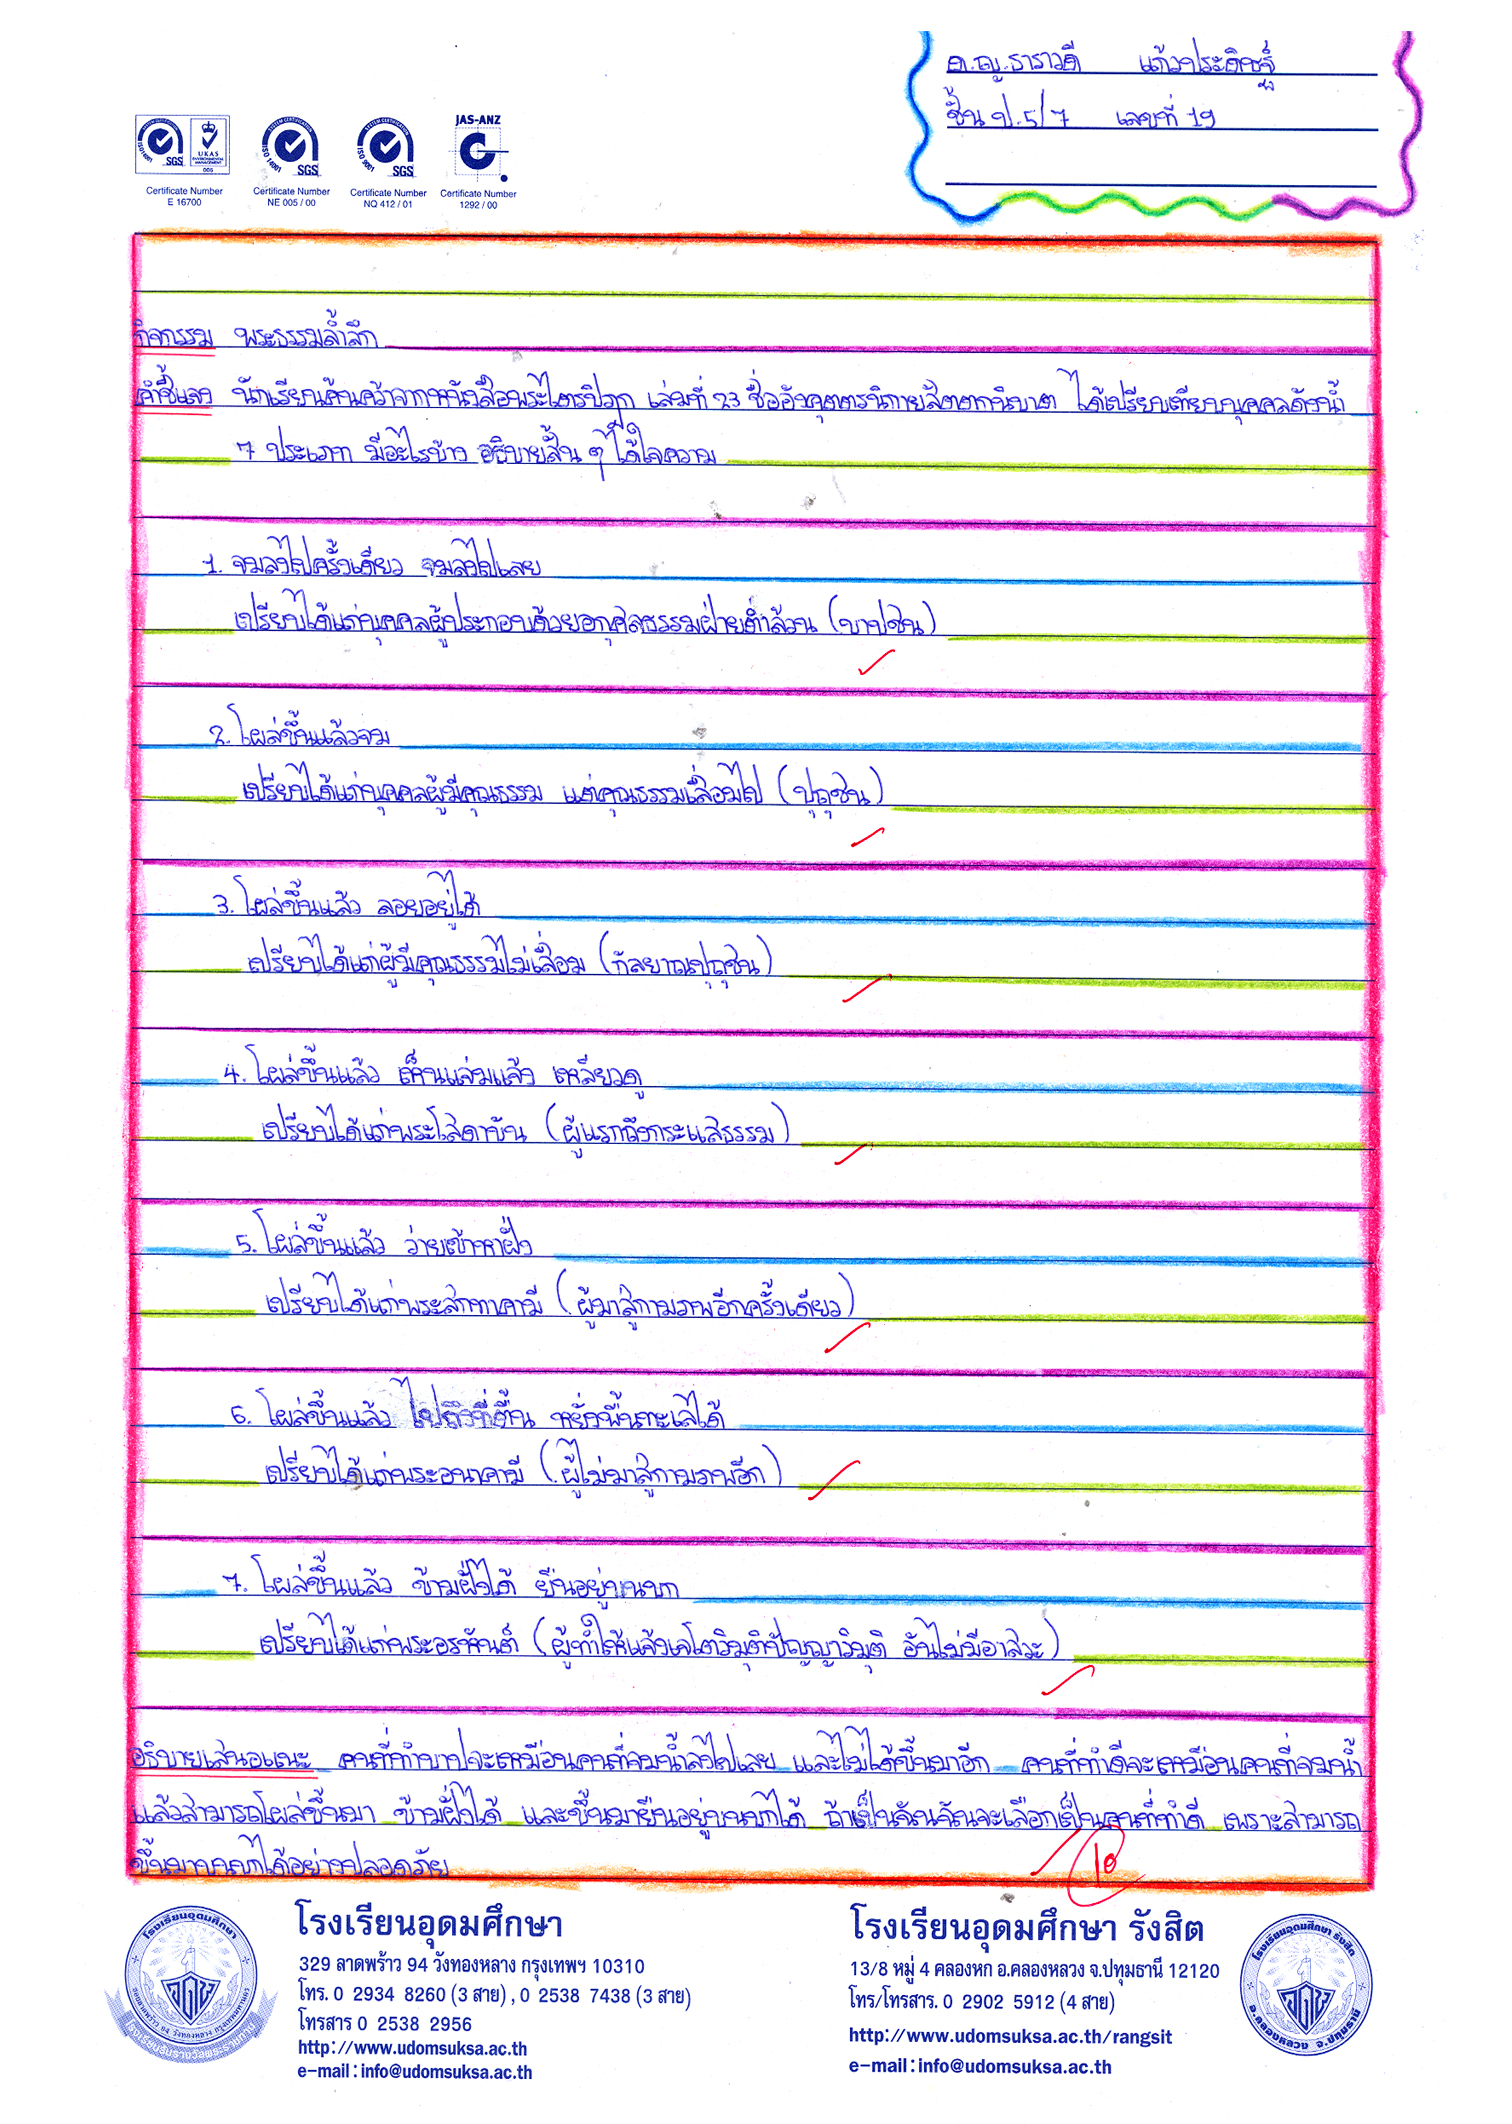 ด.ญ.ธาราวดี แก้วประดิษฐ์
ชั้น ป.5/7 เลขที่ 19
JAS-ANZ
SGS
UKAS
ENVIRONMENTAL
MANAGEMENT
005
SGS
SGS
Certificate Number
E 16700
Certificate Number
NE 005 / 00
Certificate Number
NQ 412 / 01
Certificate Number
1292 / 00
กิจกรรม พระธรรมล้ำลึก
คำชี้แจง นักเรียนค้นคว้าจากหนังสือพระไตรปิฎก เล่มที่ 23 ชื่ออังคุตตรนิกายสัตตกนิบาต ได้เปรียบเทียบบุคคลดังน้ำ
7 ประเภท มีอะไรบ้าง อธิบายสั้น ๆ ได้ใจความ
1. จมลงไปครั้งเดียว จมลงไปเลย
เปรียบได้แก่บุคคลผู้ประกอบด้วยอกุศลธรรมฝ่ายดำล้วน (บาปชน)
2. โผล่ขึ้นแล้วจม
เปรียบได้แก่บุคคลผู้มีคุณธรรม แต่คุณธรรมเสื่อมไป (ปุถุชน)
3. โผล่ขึ้นแล้ว ลอยอยู่ได้
เปรียบได้แก่ผู้มีคุณธรรมไม่เสื่อม (กัลยาณปุถุชน)
4. โผล่ขึ้นแล้ว เห็นแจ่มแจ้ง เหลียวดู
เปรียบได้แก่พระโสดาบัน (ผู้แรกถึงกระแสธรรม)
5. โผล่ขึ้นแล้ว ว่ายเข้าหาฝั่ง
เปรียบได้แก่พระสกทาคามี (ผู้มาสู่กามภพอีกครั้งเดียว)
6. โผล่ขึ้นแล้ว ไปถึงที่ตื้น หยั่งพื้นทะเลได้
เปรียบได้แก่พระอนาคามี (ผู้ไม่มาสู่กามภพอีก)
7. โผล่ขึ้นแล้ว ข้ามฝั่งได้ ยืนอยู่บนบก
เปรียบได้แก่พระอรหันต์ (ผู้ทำให้แจ้งเจโตวิมุติปัญญาวิมุติ อันไม่มีอาสวะ)
อธิบายเสนอแนะ คนที่ทำบาปจะเหมือนคนที่จมน้ำลงไปเลย และไม่ได้ขึ้นมาอีก คนที่ทำดีจะเหมือนคนที่จมน้ำ
แล้วสามารถโผล่ขึ้นมา ข้ามฝั่งได้ และขึ้นมายืนอยู่บนบกได้ ถ้าเป็นฉันฉันจะเลือกเป็นคนที่ทำดี เพราะสามารถ
ขึ้นมาบนบกได้อย่างปลอดภัย
10
โรงเรียนอุดมศึกษา
329 ลาดพร้าว 94 วังทองหลาง กรุงเทพฯ 10310
โทร. 0 2934 8260 (3 สาย) , 0 2538 7438 (3 สาย)
โทรสาร 0 2538 2956
http://www.udomsuksa.ac.th
e-mail : info@udomsuksa.ac.th
โรงเรียนอุดมศึกษา รังสิต
13/8 หมู่ 4 คลองหก อ.คลองหลวง จ.ปทุมธานี 12120
โทร/โทรสาร. 0 2902 5912 (4 สาย)
http://www.udomsuksa.ac.th/rangsit
e-mail : info@udomsuksa.ac.th
โรงเรียนอุดมศึกษา รังสิต
อ.คลองหลวง จ.ปทุมธานี